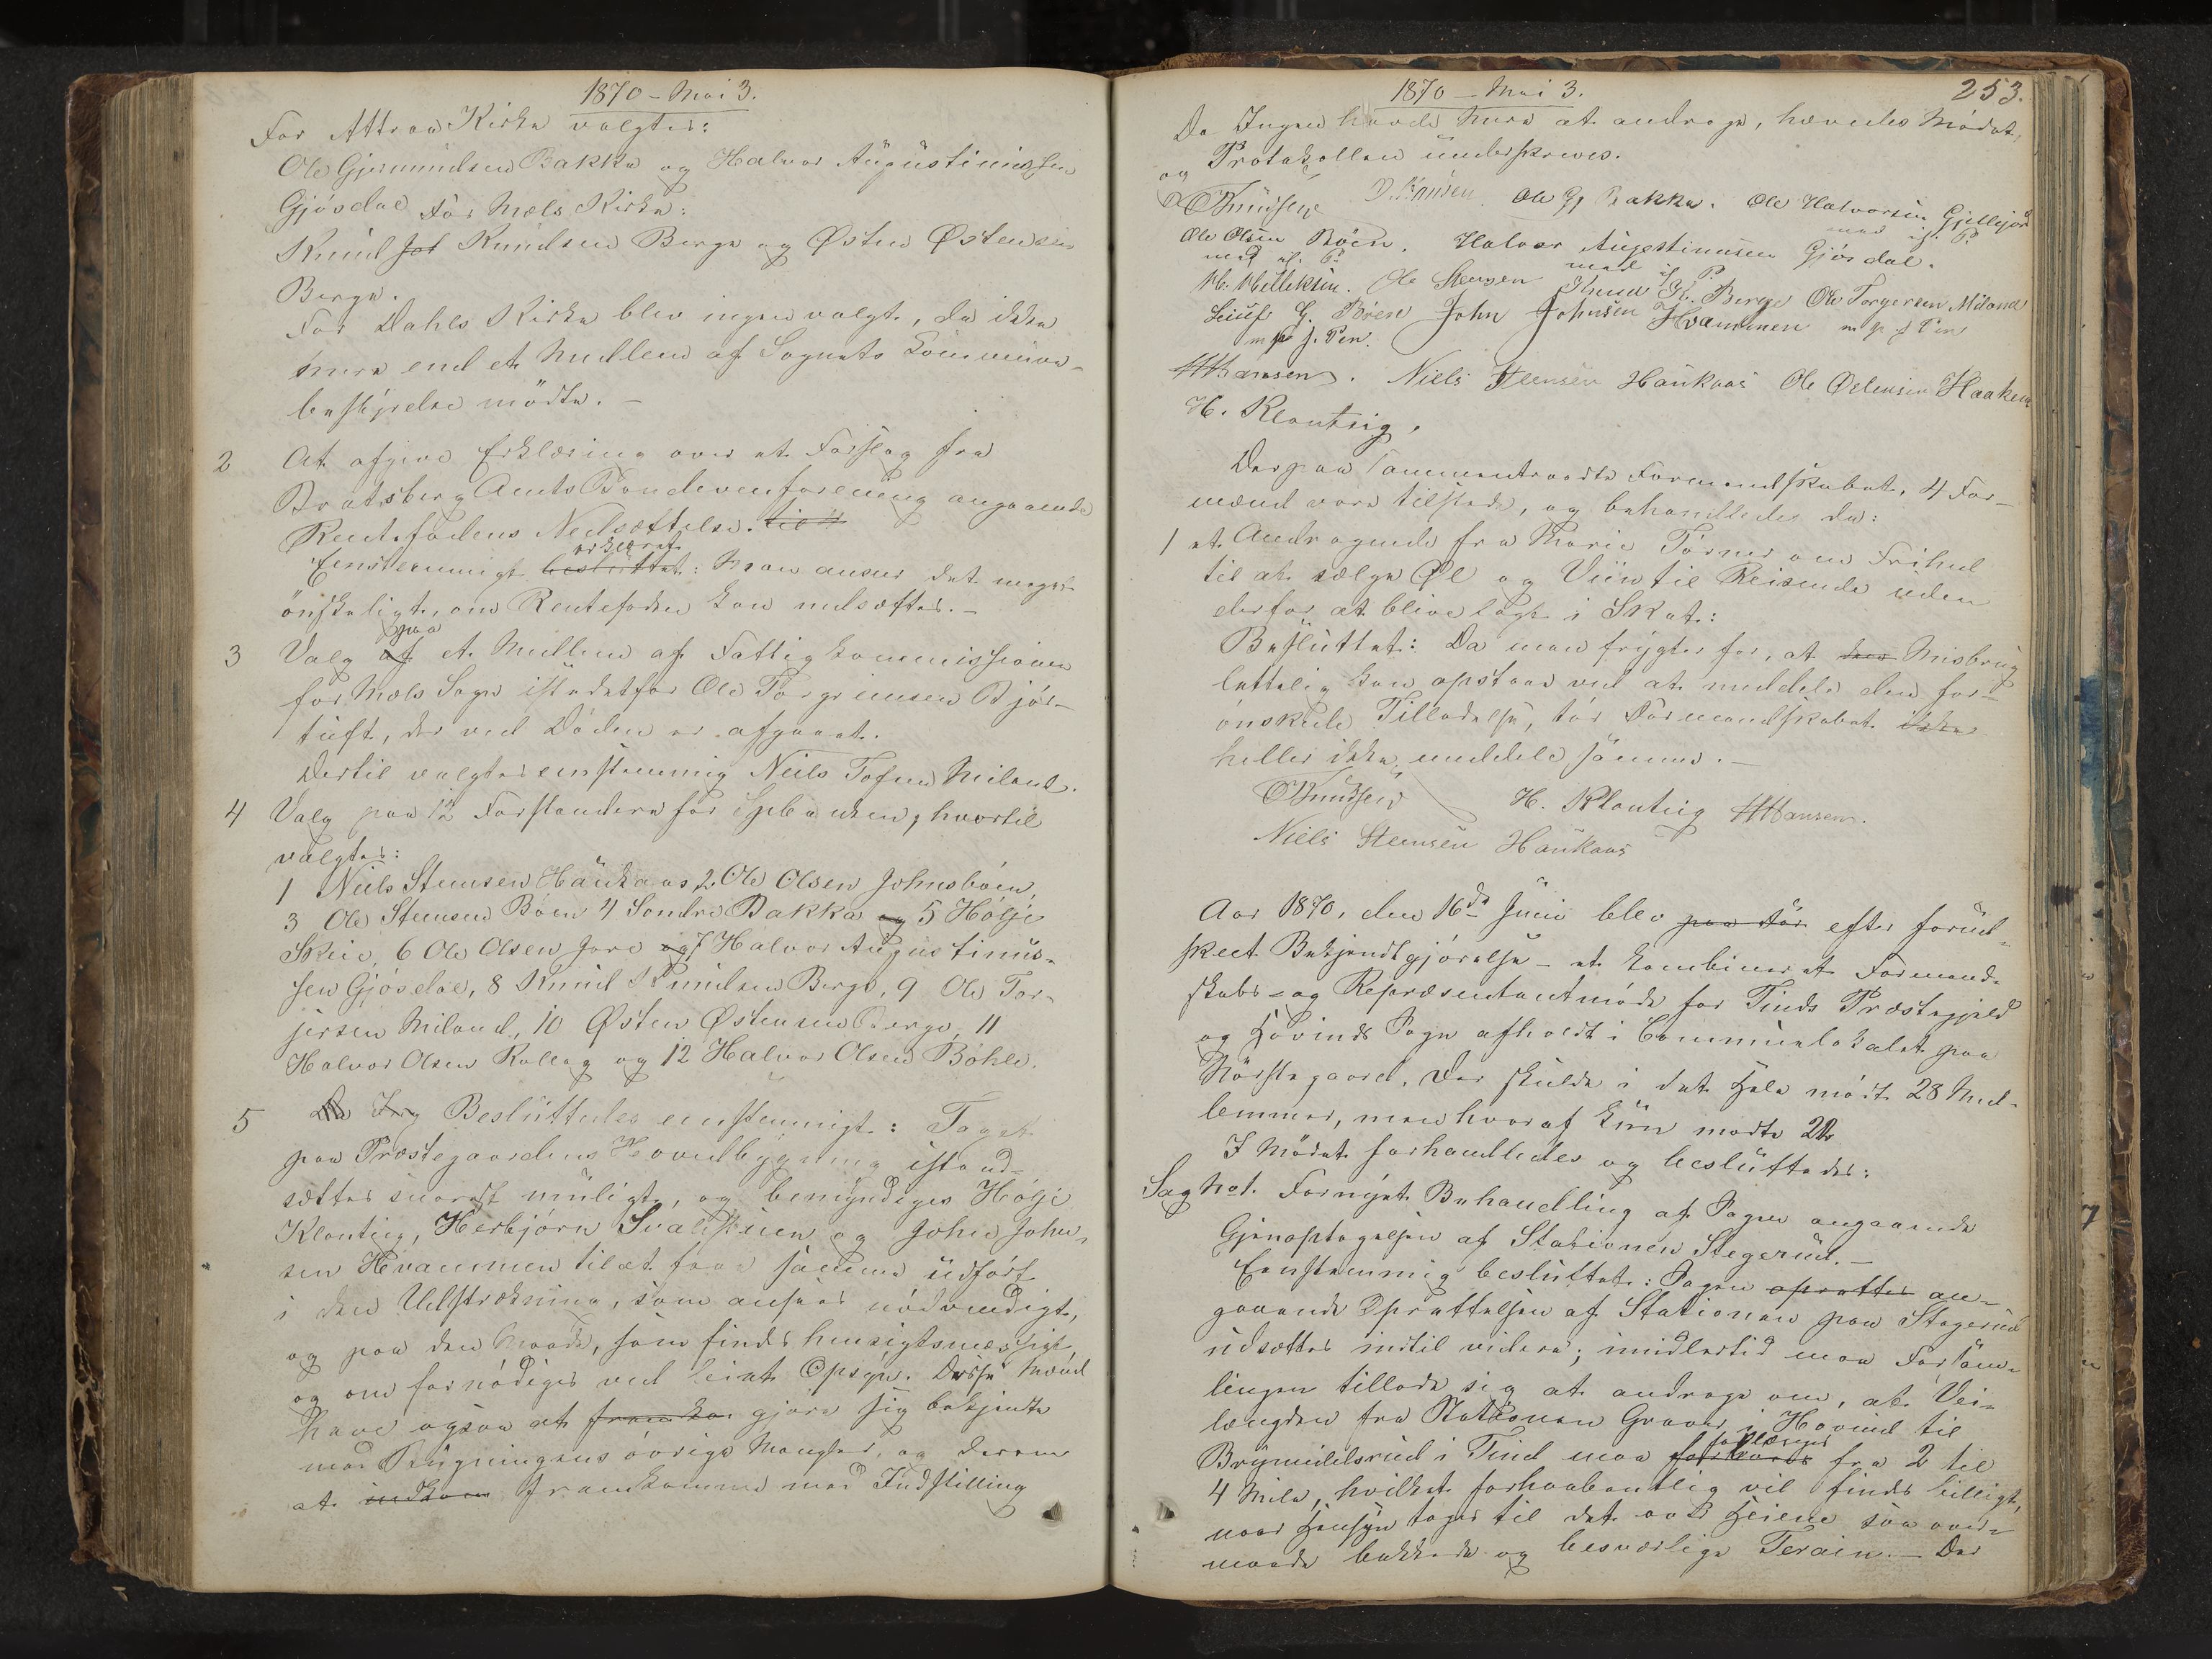 1870 - Mai 3.
For Attraa Kirke valgtes:
Ole Gjermundsen Bakka og Halvor Augustinussen
Gjösdal For Mæls Kirke:
Knud Jol Knudsen Berge og Østen Østensen
Berge.
For Dahls Kirke blev ingen valgt, da ikke
mere end et Medlem af Sognets Kommune-
bestyrelse mödte. -
2 At afgive Erklæring over et Forslag fra
Bratsberg Amts Bondevenforening angaaende
Rentefodens Nedsættelse. til
erklæret
Eenstemmigt besluttet: Man anser det meget
önskeligt, om Rentefoden kan nedsættes. -
paa
3 Valg af et Medlem af Fattigkommissionen
for Mæls Sogn istedetfor Ole Torgrimsen Björ-
tuft, der ved Döden er afgaaet.
Dertil valgtes eenstemmig Neils Tofsen Miland.
4 Valg paa 12 Forstandere for Spbanken, hvortil
valgtes:
1 Neils Steensen Haukaas 2 Ole Olsen Johnsböen,
3 Ole Steensen Böen 4 Sondre Bakka og 5 Höljé
Skeie, 6 Ole Olsen Jore og 7 Halvor Augustinus-
sen Gjösdal, 8 Knud Knudsen Berge, 9 Ole Tor-
jersen Miland, 10 Østen Østensen Berge, 11
Halvor Olsen Rollag og 12 Halvor Olsen Böhle.
5 Da Ing Besluttedes eenstemmigt: Taget
paa Præstegaardens Hovedbygning istand-
sættes snarest muligt, og bemyndiges Höljé
Klontjeig, Herbjörn Svalestuen og John John-
sen Hvammen til at faae samme udfört
i den Udstrækning, som ansees nödvendigt,
og paa den Maade, som findes hensigtsmæssigt
og om fornödiges ved leiet Opsyn. Disse Mænd
have ogsaa at gjöre sig bekjendte
med Bygningens övrige Mangler, og derom
at indkom fremkomme med Indstilling
1870 - Mai 3.
253.
Da Ingen havde mere at andrage, hævedes Mödet,
og Protokollen underskrives.
OKnudsen D. Hansen Ole Gj Bakka. Ole Halvorsen Gjellejord
med if. P.
Ole Olsen Böen. Halvor Augestinusen Gjösdal.
med if. P. med if P.
H. Helleksen. Ole Steensen Knud K. Berge Ole Torgersen Miland
Leiuf G. Böen John Johnsen Hvammen m p f Pen
m p f. Pen.
HHansen. Niels Steensen Haukaas Ole Østensen Haaken
H. Klonteig.
Derpaa sammentraadte Formandskabet. 4 For-
mænd vare tilstede, og behandledes da:
1 et Andragende fra Marie Törnes om Frihed
til at sælge Øl og Viin til Reisende uden
derfor at blive lagt i Skat:
Besluttet: Da man frygter for, at Misbrug
lettelig kan opstaae ved at meddele den for-
önskede Tilladelse, tör Formandskabet ikke
heller ikke meddele samme. -
OKnudsen H. Klonteig HHansen.
Niels Steensen Haukaas
Aar 1870, den 16de Juni blev paa For efter forud-
skeet Bekjendtgjörelse - et kombineret Formand-
skabs- og Repræsentantmöde for Tinds Præstegjeld
og Hovinds Sogn afholdt i Communelokalet paa
Mörstegaard. Der skulde i det Hele mödt 28 Med-
lemmer, men hvoraf kun mödte 22
I Mödet forhandledes og besluttedes:
Sag No 1. Fornyet Behandling af Sagen angaaende
Gjenoptagelsen af Stationen Stegerud. -
Eenstemmig besluttet: Sagen oprettes an-
gaaende Oprettelsen af Stationen paa Stegerud
udsættes indtil videre; imidlertid maa Forsam-
lingen tillade sig at andrage om, at Vei-
længden fra Stationen Graver i Hovind til
forlænges
Brymildsrud i Tind maa fra 2 til
4 Mile, hvilket forhaabentlig vil findes billigt,
naar Hensyn tages til det over Heiene saa over-
maade bakkede og besværlige Terain. - Der